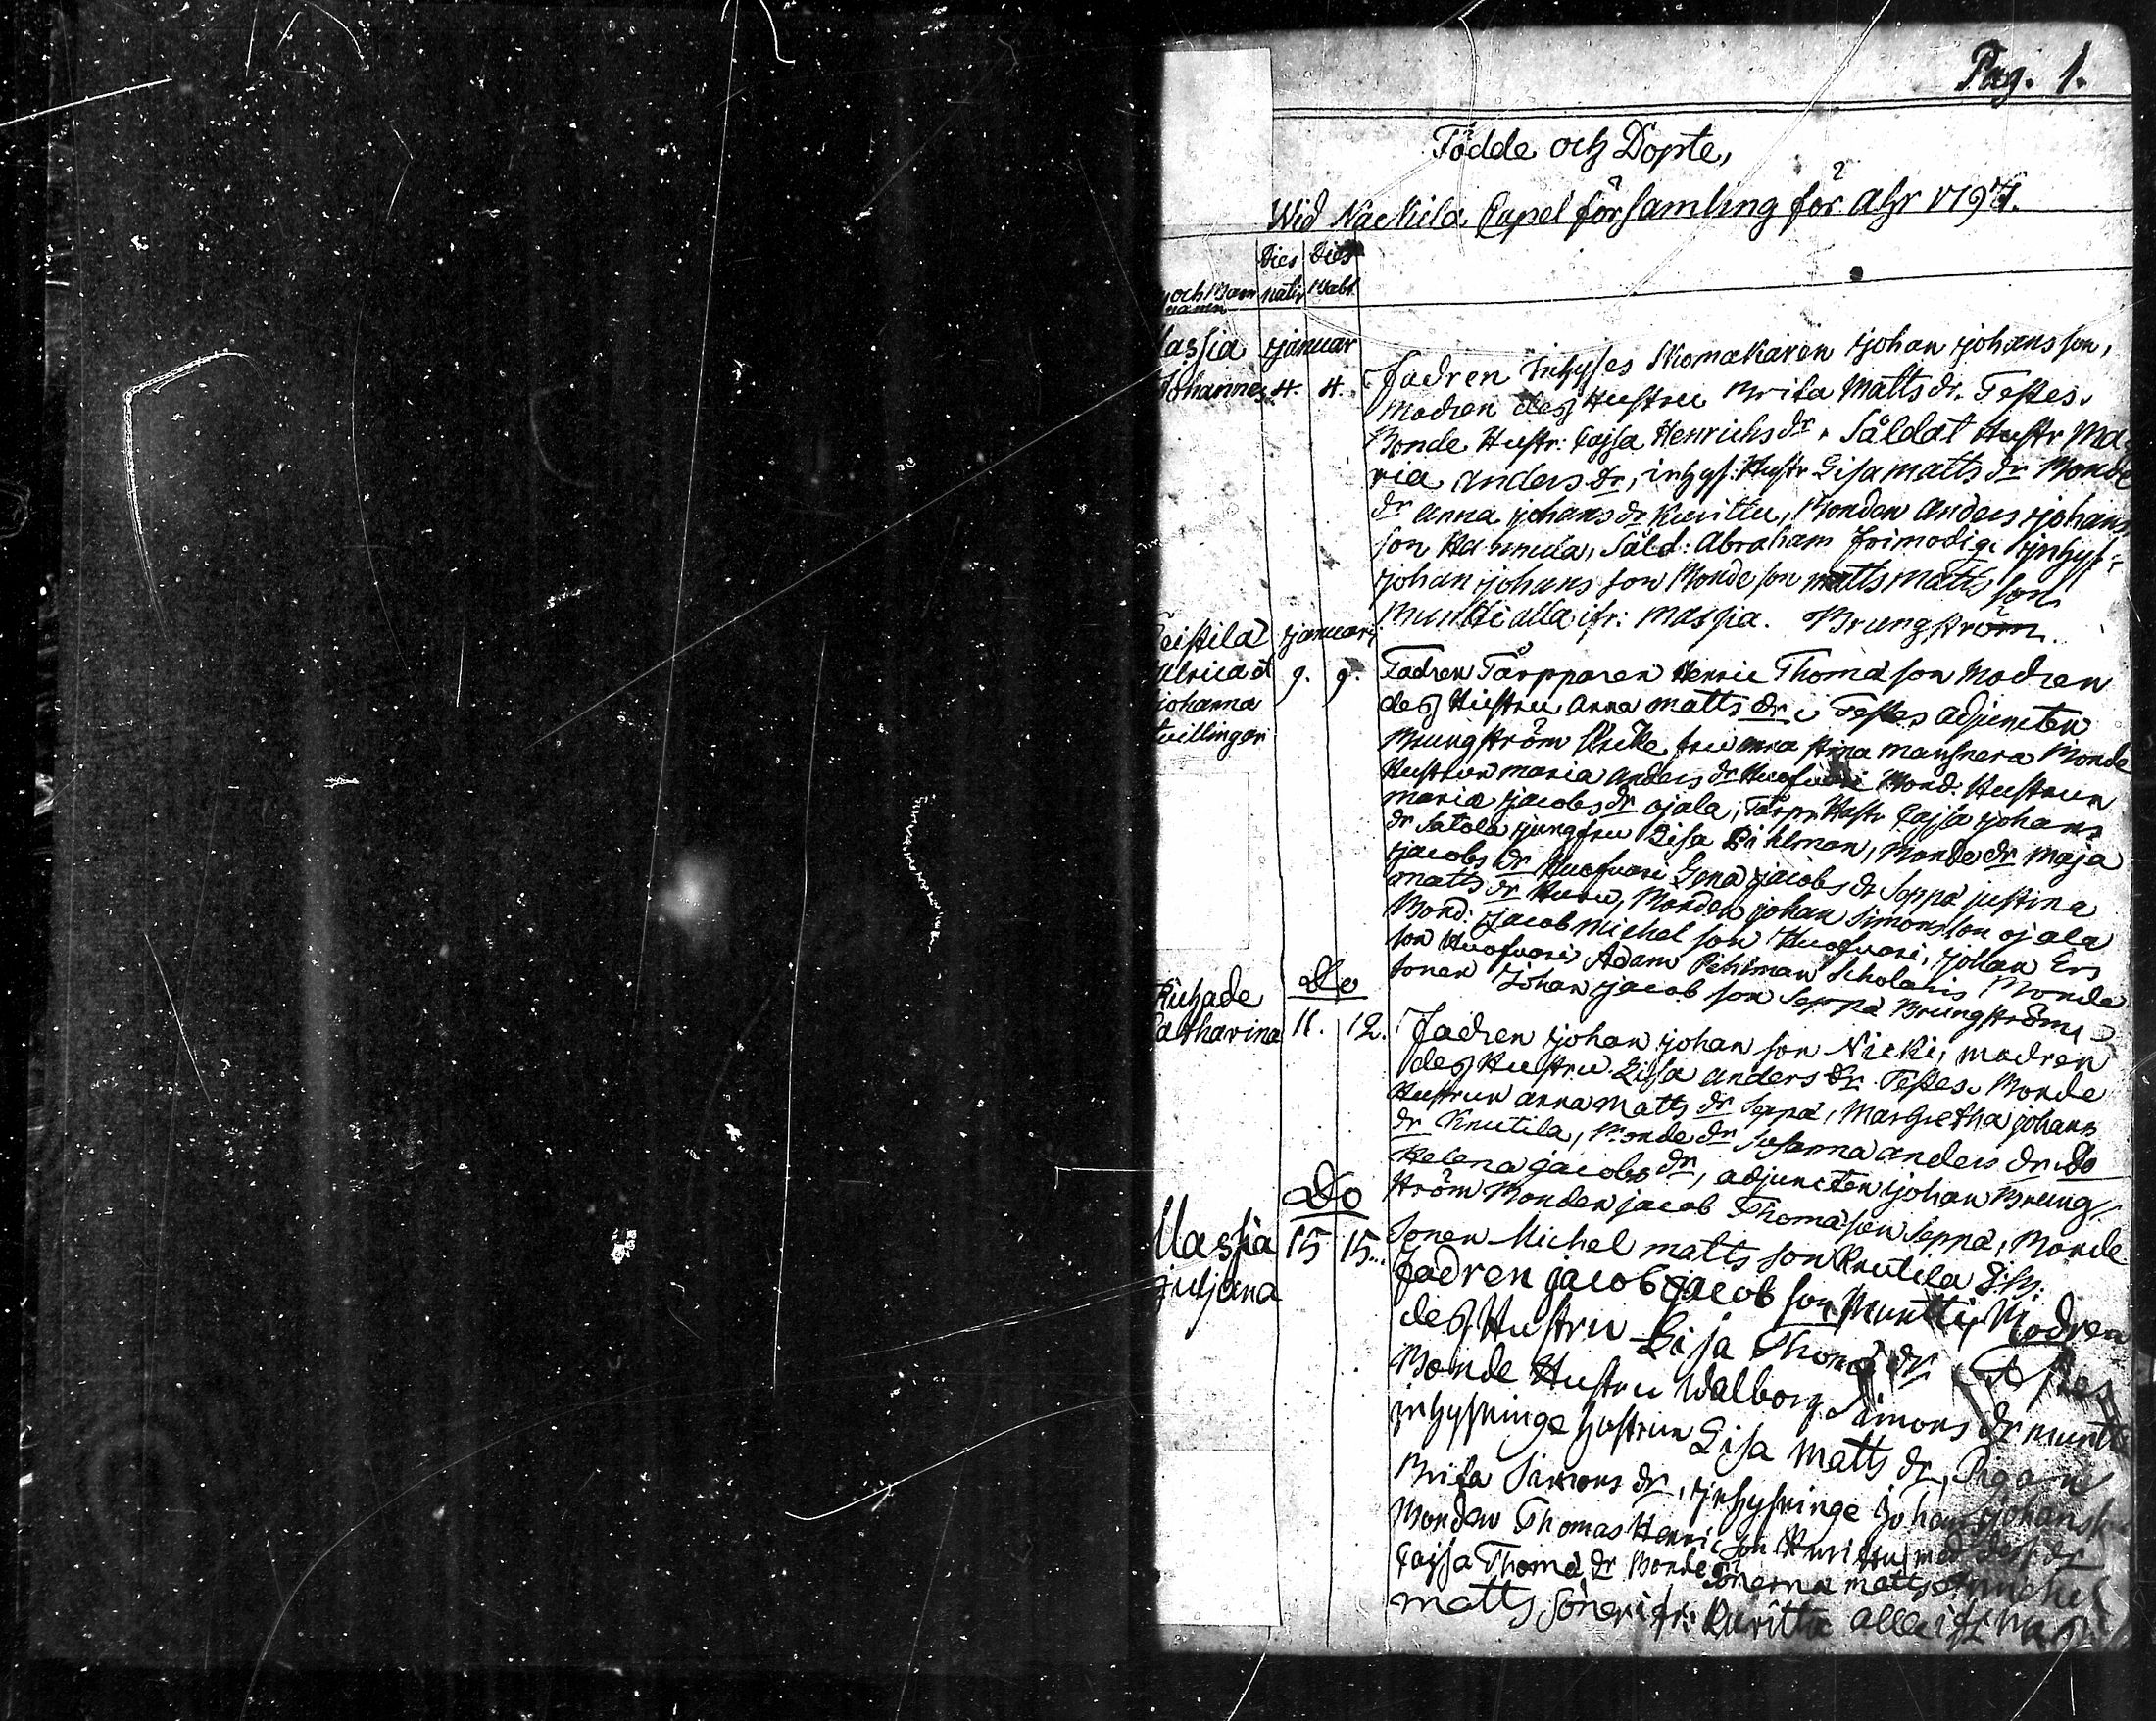 Pag. 1.
Födde och Döpte,
Wid Nackila Capel församling för åhr 1797.
Dies Dies
och Barn nativ Babt
namn
Massia januar
Johannes 4. 4.
Fadren inhyses Skomakaren johan johans son,
Modren desz Hustru Brita Matts dr. Testes.
Bonde Hustr: Cajsa Henrichs dr, Såldat Hustr Ma-
ria anders dr, inhys: Hustr Lisa matts dr Bonde
dr anna johans dr Kurittu, Bonden anders johans
son Hannula, Såld: Abraham Frimodig, jnhys:
johan johans son Bonde son matts matts son
Muntti alla ifr: massia. Brungström.
januari
Ulrica et 9. 9.
johanna
tvillingar
Fadren Tårpparen Henric Thoma son Modren
desz Hustru anna matts dr, Testes adjuncten
Brungström fru anna stina Bonde
Hustrun maria anders dr Huofvari Bond: Hustrun
maria jacobs dr ojala, Tårpr Hustr Cajsa johans
dr Satola jungfru Lisa Pihlman, Bonde dr maja
jacobs dr Huofvari Lena jacobs dr Seppä justina
matts dr Huru, Bonden johan Simons son ojala
Bond: jacob michel son Huofvari, johan Ers
son Huofvari, Adam Pihlman Scholaris Bonde
sonen Johan jacob son Seppä Brungström
Do
Catharina 11. 12.
Fadren johan johan son Nicki, modren
desz Hustru Lisa anders dr Testes. Bonde
Hustrun anna Matts dr Seppä, Margretha johans
dr Knutila, Bonde dr Susanna anders dr Do
Helena jacobs dr, adjuncten johan Brung-
ström Bonden jacob Thoma son Seppä, Bonde
Sonen Michel matts son Knutila
Do
Massia 15 15
juljana
Fadren jacob jacob son Muntti, Modren
desz Hustru Lisa Thoma dr Testes
Bonde Hustru Walborg Simons dr muntti
inhysninge hustrun Lisa Matts dr, Pigan
Brita Simons dr, jnhysninge johan johans son
Bonden Thomas Henric son Kurittu med dess dr
Cajsa Thoma dr Bonde Sönerna matts et michel
matts söner ifr: Kuritta alla ifr